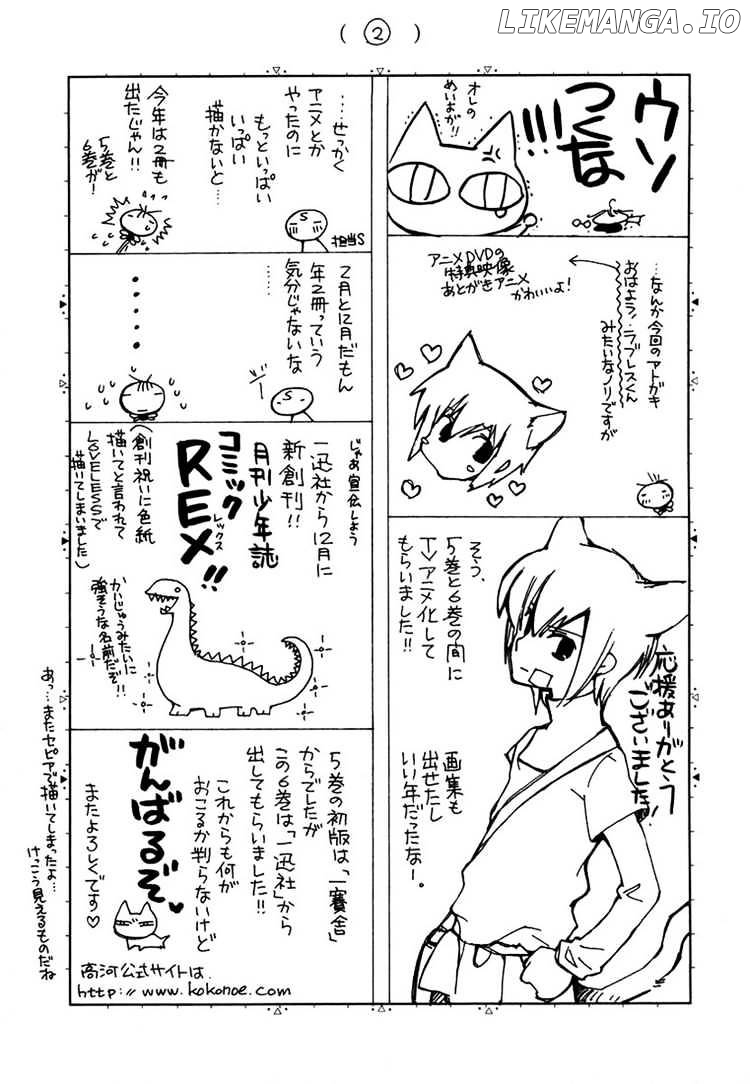 LIKEMANGA.IO
( ② )
ウソ
つくな
!!!
オレの
めいよが!!
…なんか今回のアトガキ
おはよう!ラブレスくん
みたいなノリですが
アニメDVDの
特典映像
あとがきアニメ
かわいいよ!
そう、
5巻と6巻の間に
TVアニメ化して
もらいました!!
応援ありがとう
ございました!
画集も
出せたし
いい年だったなー。
……せっかく
アニメとか
やったのに
もっといっぱい
いっぱい
描かないと…
担当S
今年は2冊も
出たじゃん!!
5巻と
6巻が!
2月と12月だもん
年2冊っていう
気分じゃないな
・・・・・・
じゃあ宣伝しよう
一迅社から12月に
新創刊!!
月刊少年誌
コミック
REX!!
レックス
(創刊祝いに色紙
描いてと言われて
LOVELESSで
描いてしまいました)
かいじゅうみたいに
強そうな名前だぞ!!
5巻の初版は、「一賽舎」
からでしたが
この6巻は、「一迅社」から
出してもらいました!!
これからも何が
おこるか判らないけど
がんばるぞ
またよろしくです♡
高河公式サイトは
http://www.kokonoe.com
あっ…またセピアで描いてしまったよ…
けっこう見えるものだね